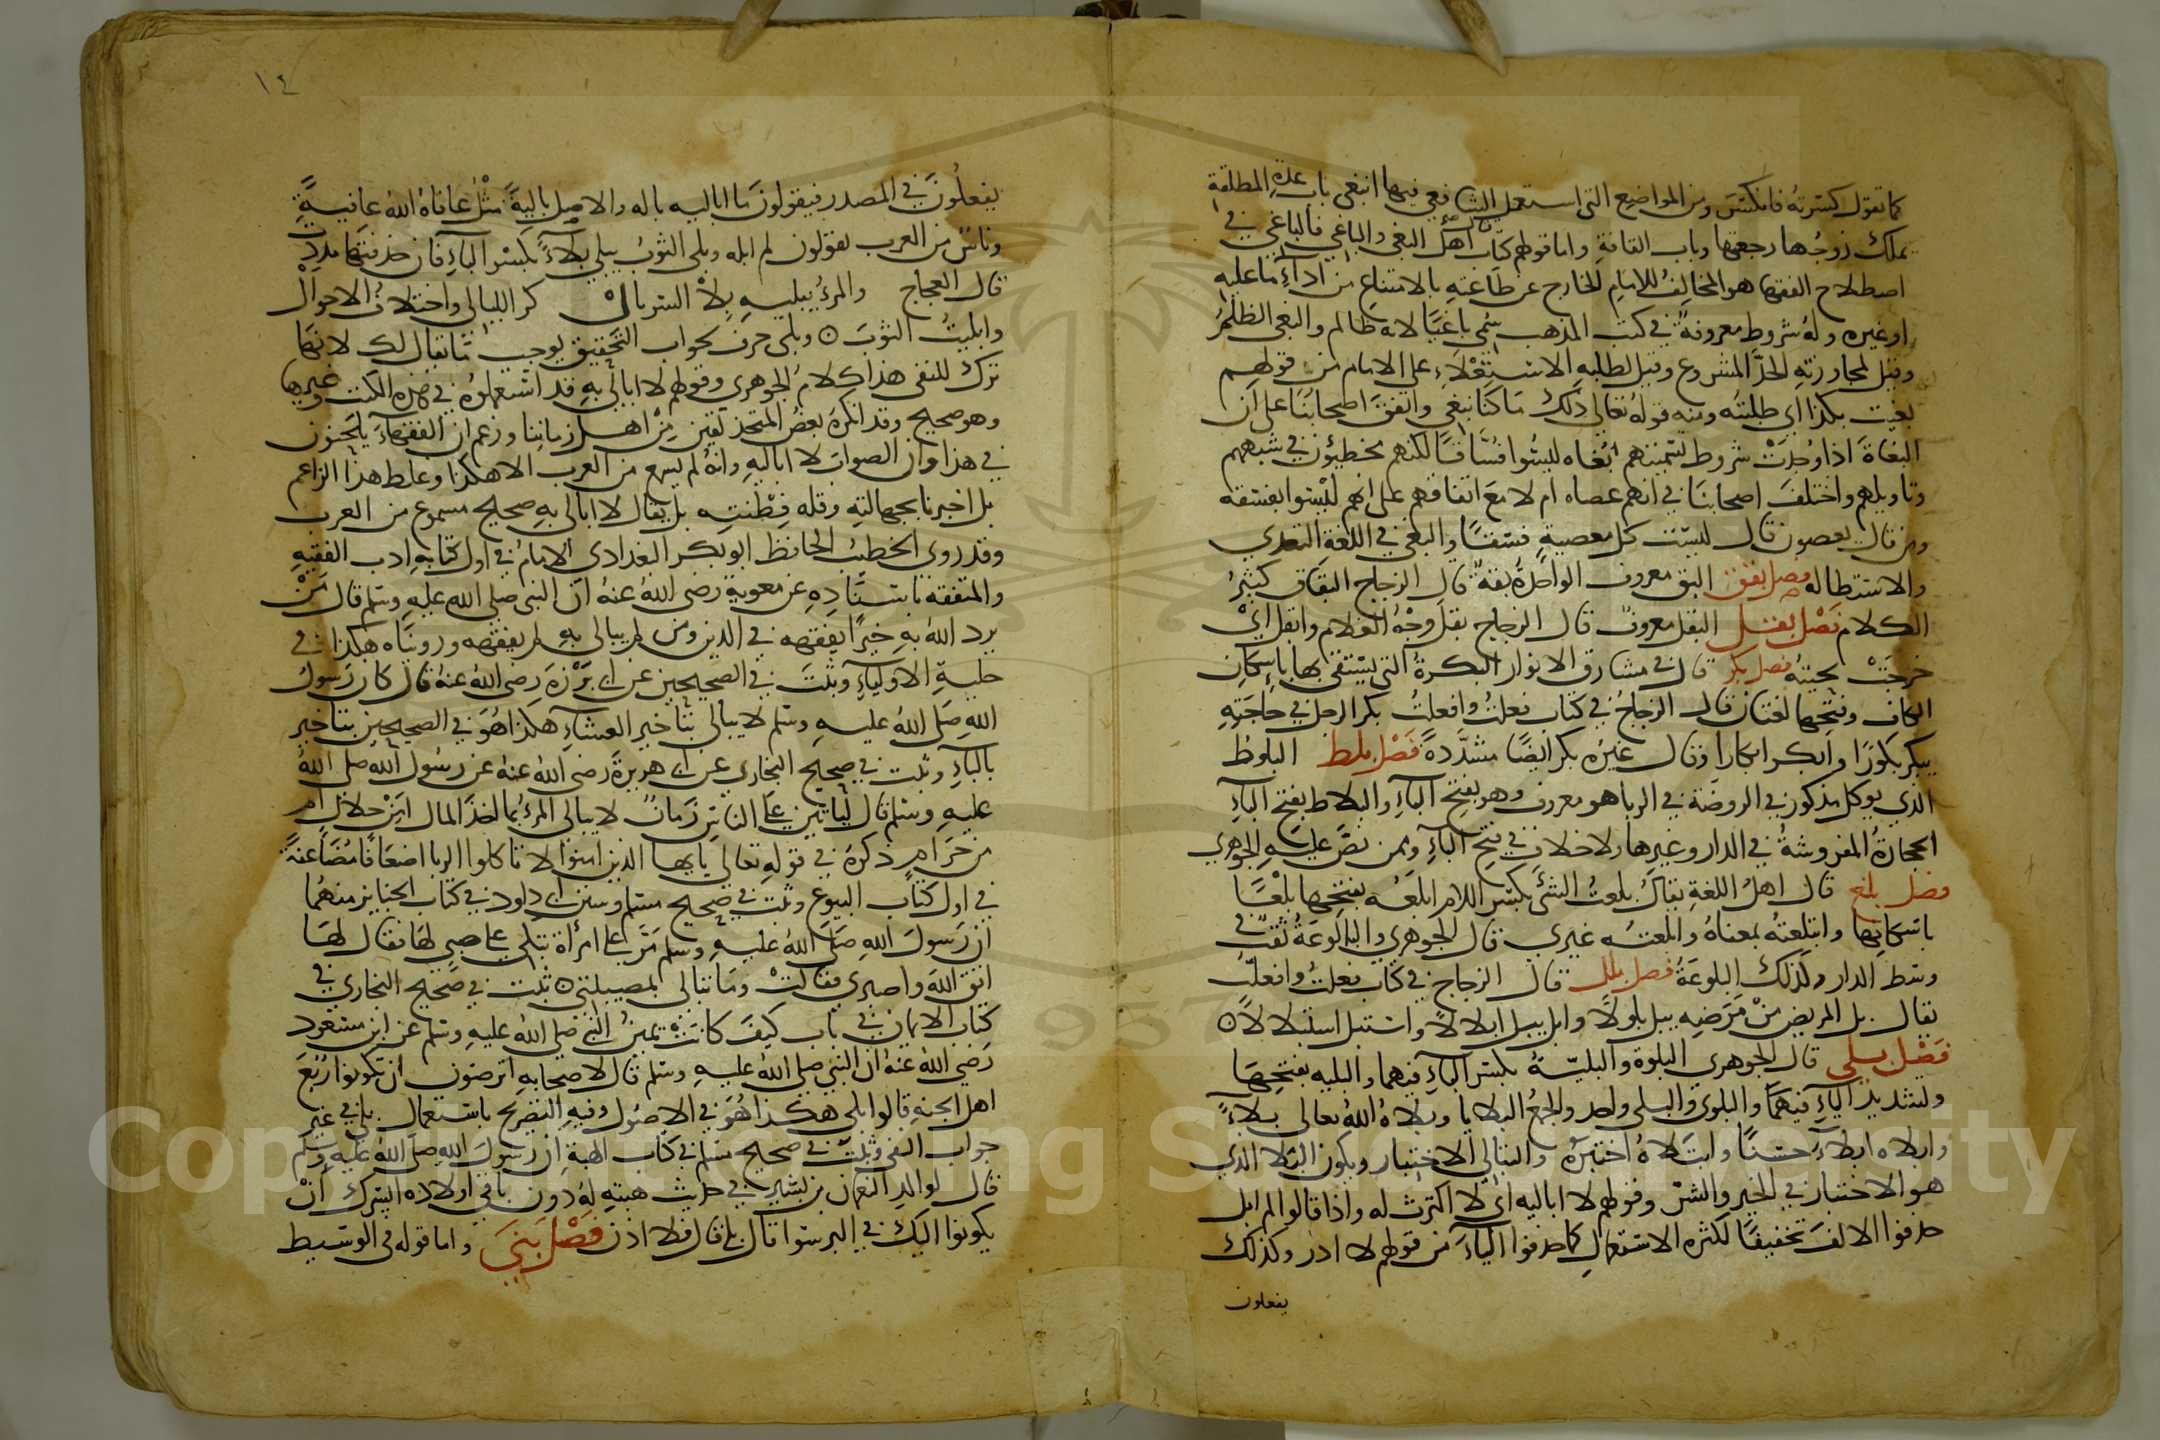 كما تقول كسرته فانكسر ومن المواضع التي استعمل الشافعي فيها انبغى باب عدة المطلقة
يملك زوجها رجعتها وباب القافة واما قولهم كتاب قتال اهل البغي والباغي فالباغي في
اصطلاح الفقهاء هو المخالف للامام الخارج عن طاعته بالامتناع من اداء ما عليه
او غيره وله شروط معروفة في كتب المذهب سمي باغيا لانه ظالم والبغي الظلم
وقيل لمجاوزته الحد المشروع وقيل لطلبه الاستعلاء على الامام من قولهم
بغيت بكذا اي طلبته ومنه قوله تعالى ذلك ما كنا نبغي واتفق اصحابنا على ان
البغاة اذا وجدت شروط تسميتهم بغاه ليسوا فساقا لكنهم مخطئون في شبههم
وتاويلهم واختلف اصحابنا في انهم عصاه ام لا مع اتفاقهم على انهم ليسوا بفسقه
ومن قال يعصون قال ليست كل معصية فسقا والبغي في اللغة التعدي
والاستطاله فصل بقق البق معروف الواحدة بقة قال الزجاج البقاق كثير
الكلام فصل بقل البقل معروف قال الزجاج بقل وجه الغلام وابقل اي
خرجت لحيته فصل بكر قال في مشارق الانوار البكرة التي يستقى بها باسكان
الكاف وفتحها لغتان قال الزجاج في كتاب فعلت وافعلت بكر الرجل في حاجته
يبكر بكورا وابكر ابكارا وقال غيره بكر ايضا مشددة فصل بلط البلوط
الذي يوكل مذكور في الروضة في الربا هو معروف وهو بفتح الباء والبلاط بفتح الباء
الحجارة المفروشة في الدار وغيرها ولا خلاف في فتح الباء وممن نص عليه الجوهري
فصل بلع قال اهل اللغة يقال بلعت الشئ بكسر اللام ابلعه بفتحها بلعا
باسكانها وابتلعته بمعناه وابلعته غيري قال الجوهري والبالوعة ثقب في
وسط الدار وكذلك البلوعة فصل بلل قال الزجاج في كتاب فعلت وافعلت
يقال بل المريض من مرضه يبل بلولا وابل يبل ابلالا واستبل استبلالا
فصل بلي قال الجوهري البلوة والبلية بكسر الباء فيهما والبليه بفتحها
وتشديد الياء فيهما والبلوى والبلى واحد والجمع البلايا وبلاه الله تعالى بلاء
وابلاه ابلاء حسنا وابتلاه اختبره والتبالي الاختبار ويكون البلا الذي
هو الاختبار في الخير والشر وقولهم لا اباليه اي لا اكترث له واذا قالوا لم ابل
حذفوا الالف تخفيفا لكثره الاستعمال كما حذفوا الياء من قولهم لا ادر وكذلك
يفعلون
١٤
يفعلون في المصدر فيقولون ما اباليه باله والاصل بالية مثل عافاه الله عافية
وناس من العرب يقولون لم ابله وبلى الثوب يبلى بلاء بكسر الباء فان فتحتها مددت
قال العجاج والمرء يبليه بلاء السربال كر الليالي واختلاف الاحوال
وابليت الثوب وبلى حرف بجواب التحقيق يوجب ما يقال لك لانها
ترك للنفي هذا كلام الجوهري وقولهم لا ابالي به قد استعملوه في هذه الكتب وغيرها
وهو صحيح وقد انكره بعض المتحذلقين من اهل زماننا وزعم ان الفقهاء يلحنون
في هذا وان الصواب لا اباليه وانه لم يسمع من العرب الا هكذا وغلط هذا الزاعم
بل اخبرنا بجهالته وقله فطنته بل يقال لا ابالي به صحيح مسموع من العرب
وقد روى الخطيب الحافظ ابو بكر البغدادي الامام في اول كتابه ادب الفقيه
والمتفقه باسناده عن معوية رضي الله عنه ان النبي صلى الله عليه وسلم قال من
يرد الله به خيرا يفقهه في الدين ومن لم يبالي به لم يفقهه وروناه هكذا في
حلية الاولياء وثبت في الصحيحين عن ابي برزة رضي الله عنه قال كان رسول
الله صلى الله عليه وسلم لا يبالي بتاخير العشاء هكذا هو في الصحيحين بتاخير
بالباء وثبت في صحيح البخاري عن ابي هريرة رضي الله عنه عن رسول الله صلى الله
عليه وسلم قال لياتين على الناس زمان لا يبالي المرء بما اخذ المال امن حلال ام
من حرام ذكره في قوله تعالى يا ايها الذين امنوا لا تاكلوا الربا اضعافا مضاعفة
في اول كتاب البيوع وثبت في صحيح مسلم وسنن ابي داود في كتاب الجنايز منهما
ان رسول الله صلى الله عليه وسلم مر على امرأة تبكي على صبي لها فقال لها
اتق الله واصبري فقالت وما تبالي بمصيبتي ثبت في صحيح البخاري في
كتاب الايمان في باب كيف كانت يمين النبي صلى الله عليه وسلم عن ابن مسعود
رضي الله عنه ان النبي صلى الله عليه وسلم قال لاصحابه اترضون ان تكونوا ربع
اهل الجنة قالوا بلى هكذا هو في الاصول وفيه التصريح باستعمال بلى في غير
جواب النفي وثبت في صحيح مسلم في كتاب الهبة ان رسول الله صلى الله عليه وسلم
قال لوالد النعمان بن بشير في حديث هبته له دون باقي اولاده ايسرك ان
يكونوا اليك في البر سوا قال بلى قال فلا اذن فصل بني واما قوله في الوسيط
Copyright © King Saud University
957